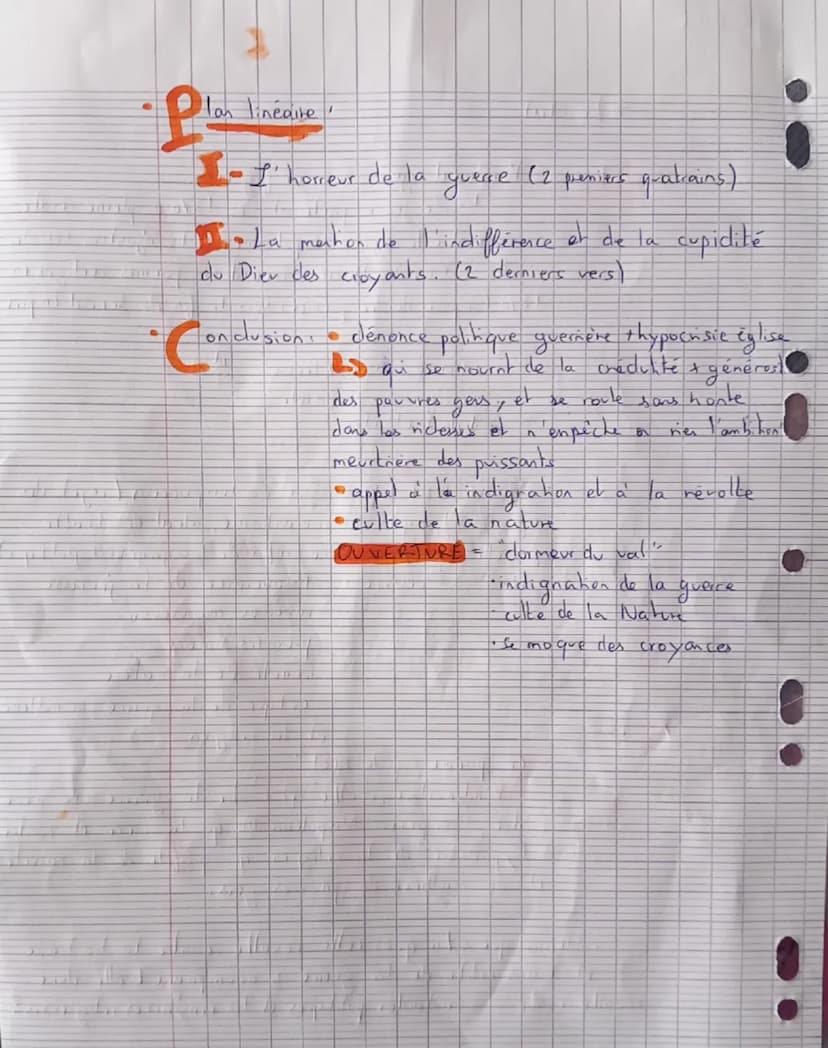 • Plan linéaire :
I - L'horreur de la guerre (2 premiers quatrains)
II • La mention de l'indifférence et de la cupidité
du Dieu des croyants. (2 derniers vers)
• Conclusion : • dénonce politique guerrière + hypocrisie église
↳ qui se nourrit de la crédulité + générosit
des pauvres gens, et se roule sans honte
dans les richesses et n'empêche en rien l'ambition
meurtrière des puissants
• appel à la indignation et à la révolte
• culte de la nature
OUVERTURE = "dormeur du val"
• indignation de la guerre
- culte de la Nature
• se moque des croyances